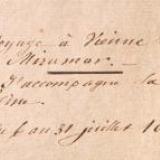 Voyage à Vienne
Miramar.
J'accompagne la
du 6 au 31 juillet 18